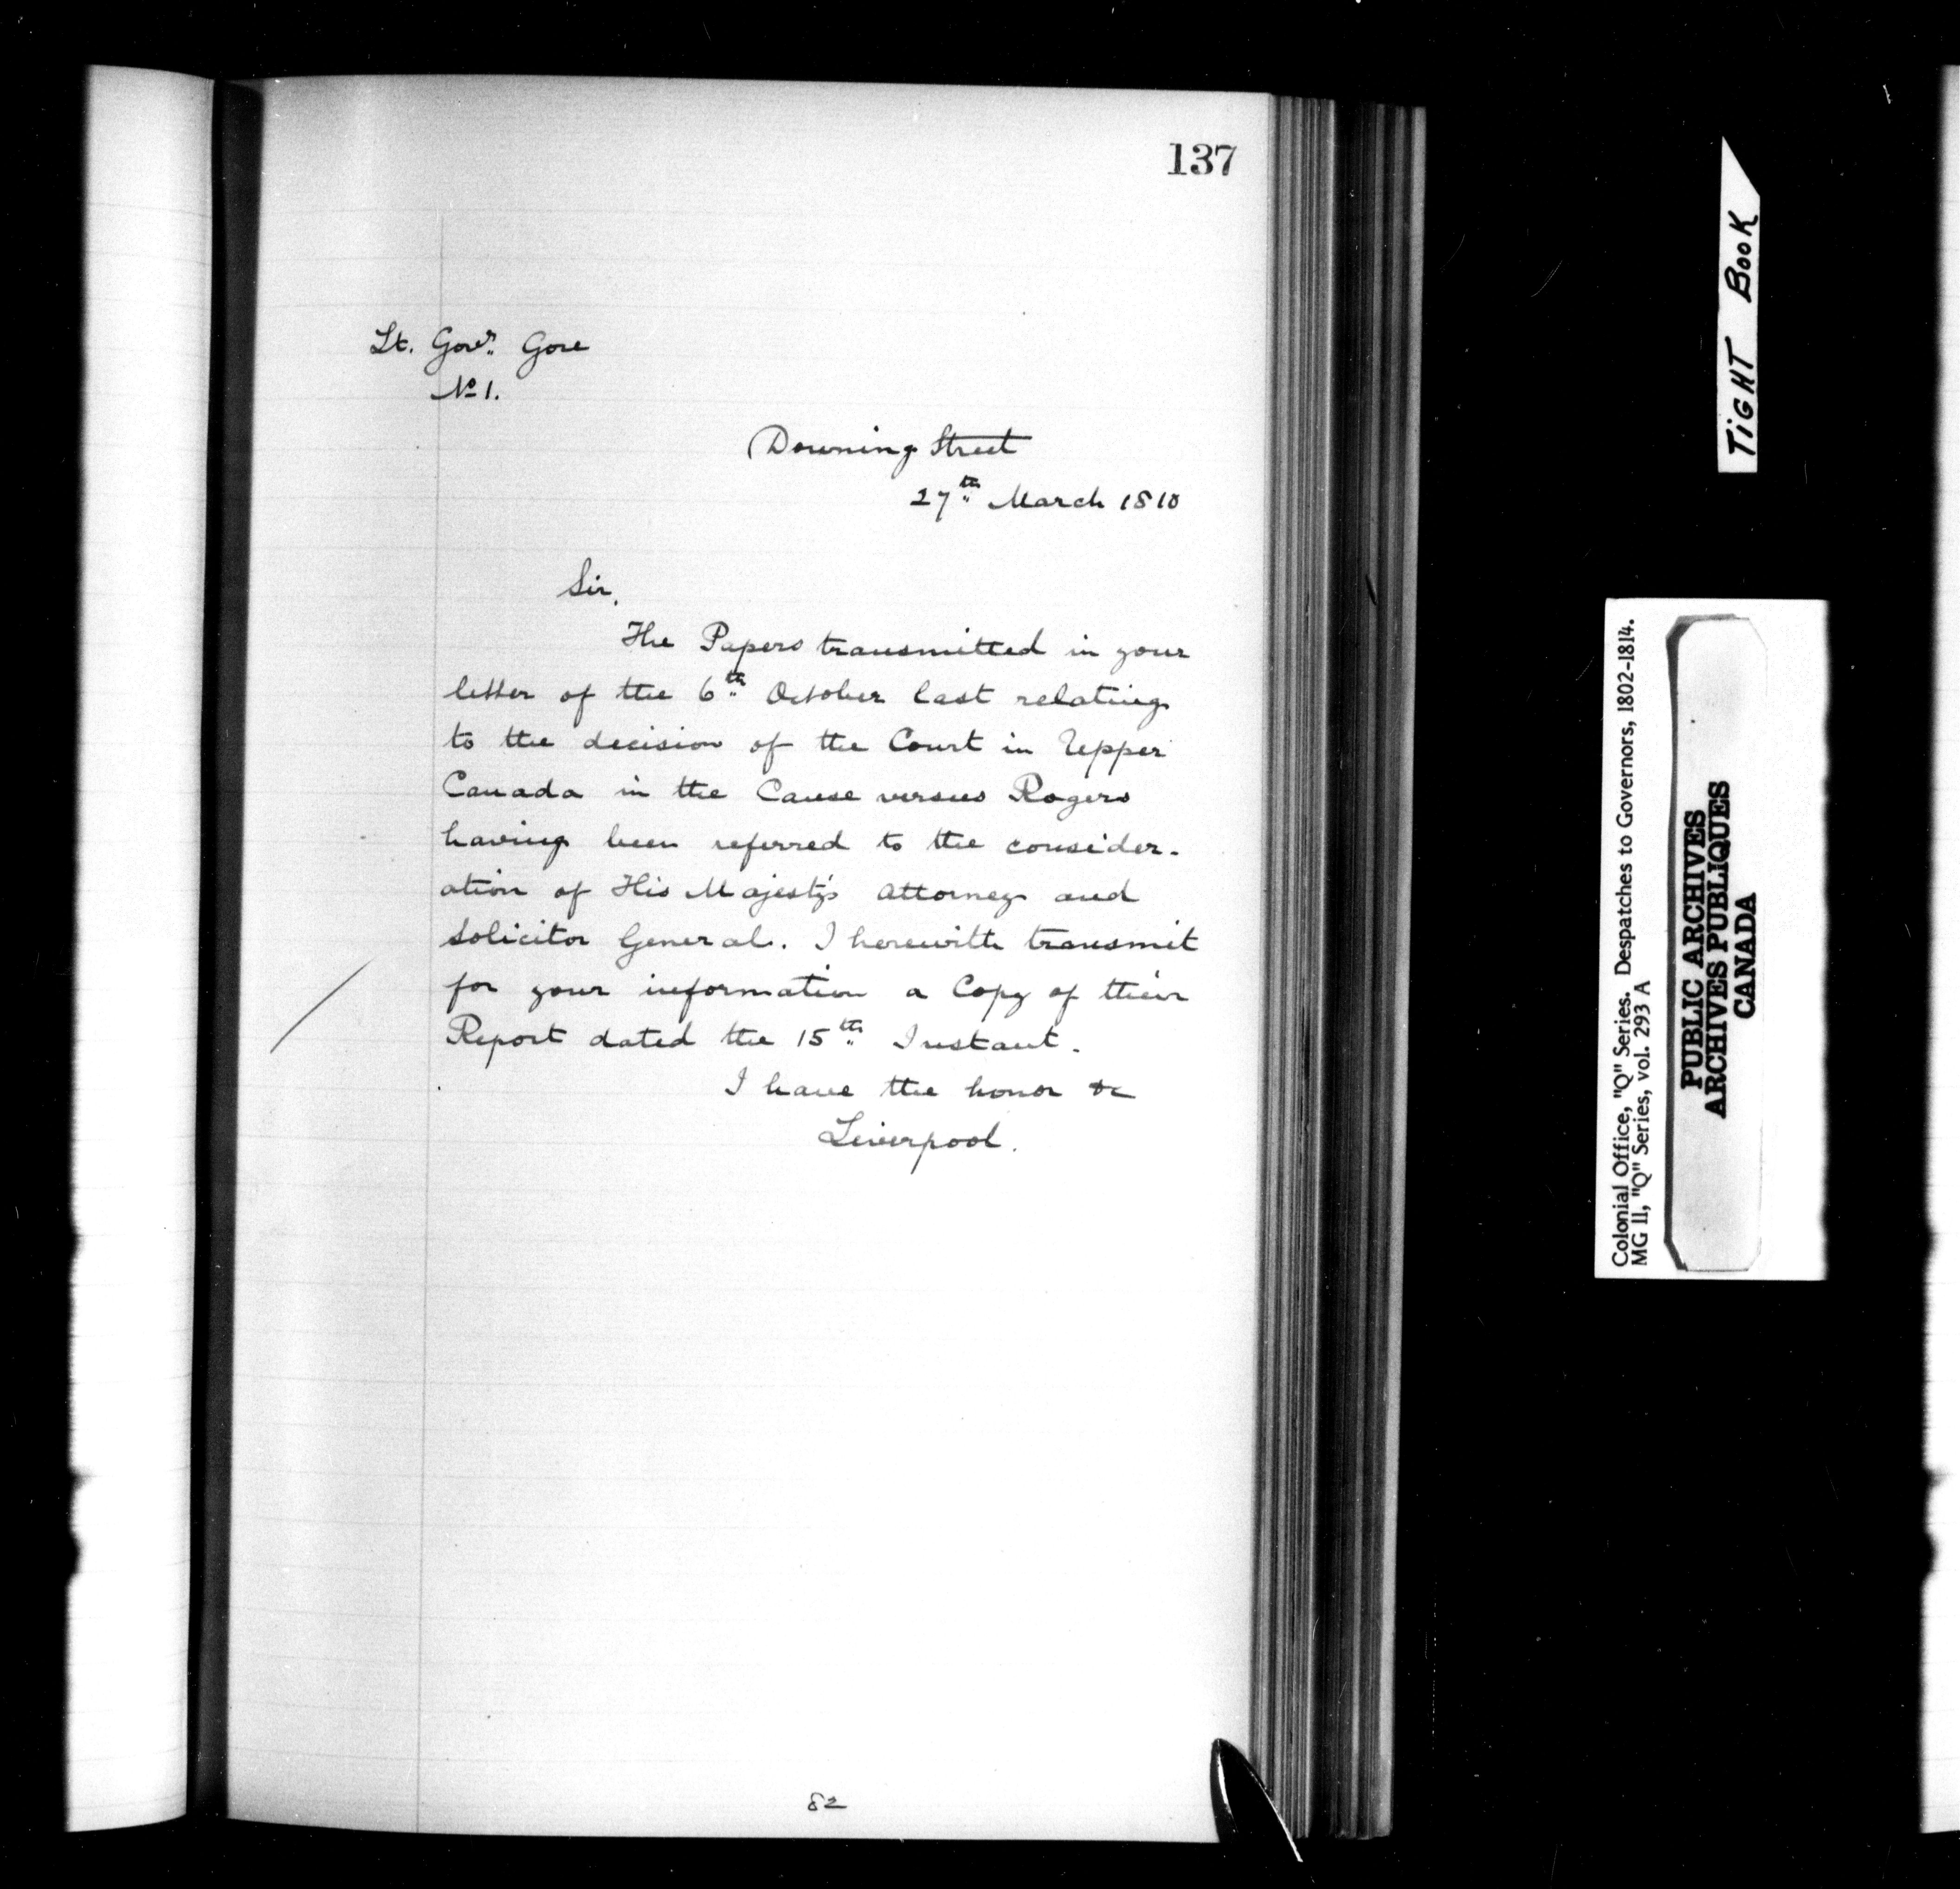 137
Lt. Govr. Gore
No 1.
Downing Street
27th March 1810
Sir,
The Papers transmitted in your
letter of the 6th October last relating
to the decision of the Court in Upper
Canada in the Cause versus Rogers
having been referred to the consider-
ation of His Majesty's Attorney and
Solicitor General. I herewith transmit
for your information a Copy of their
Report dated the 15th Instant.
I have the honor &c
Liverpool.
82
TIGHT BOOK
Colonial Office, "Q" Series. Despatches to Governors, 1802-1814.
MG 11, "Q" Series, vol. 293 A
PUBLIC ARCHIVES
ARCHIVES PUBLIQUES
CANADA